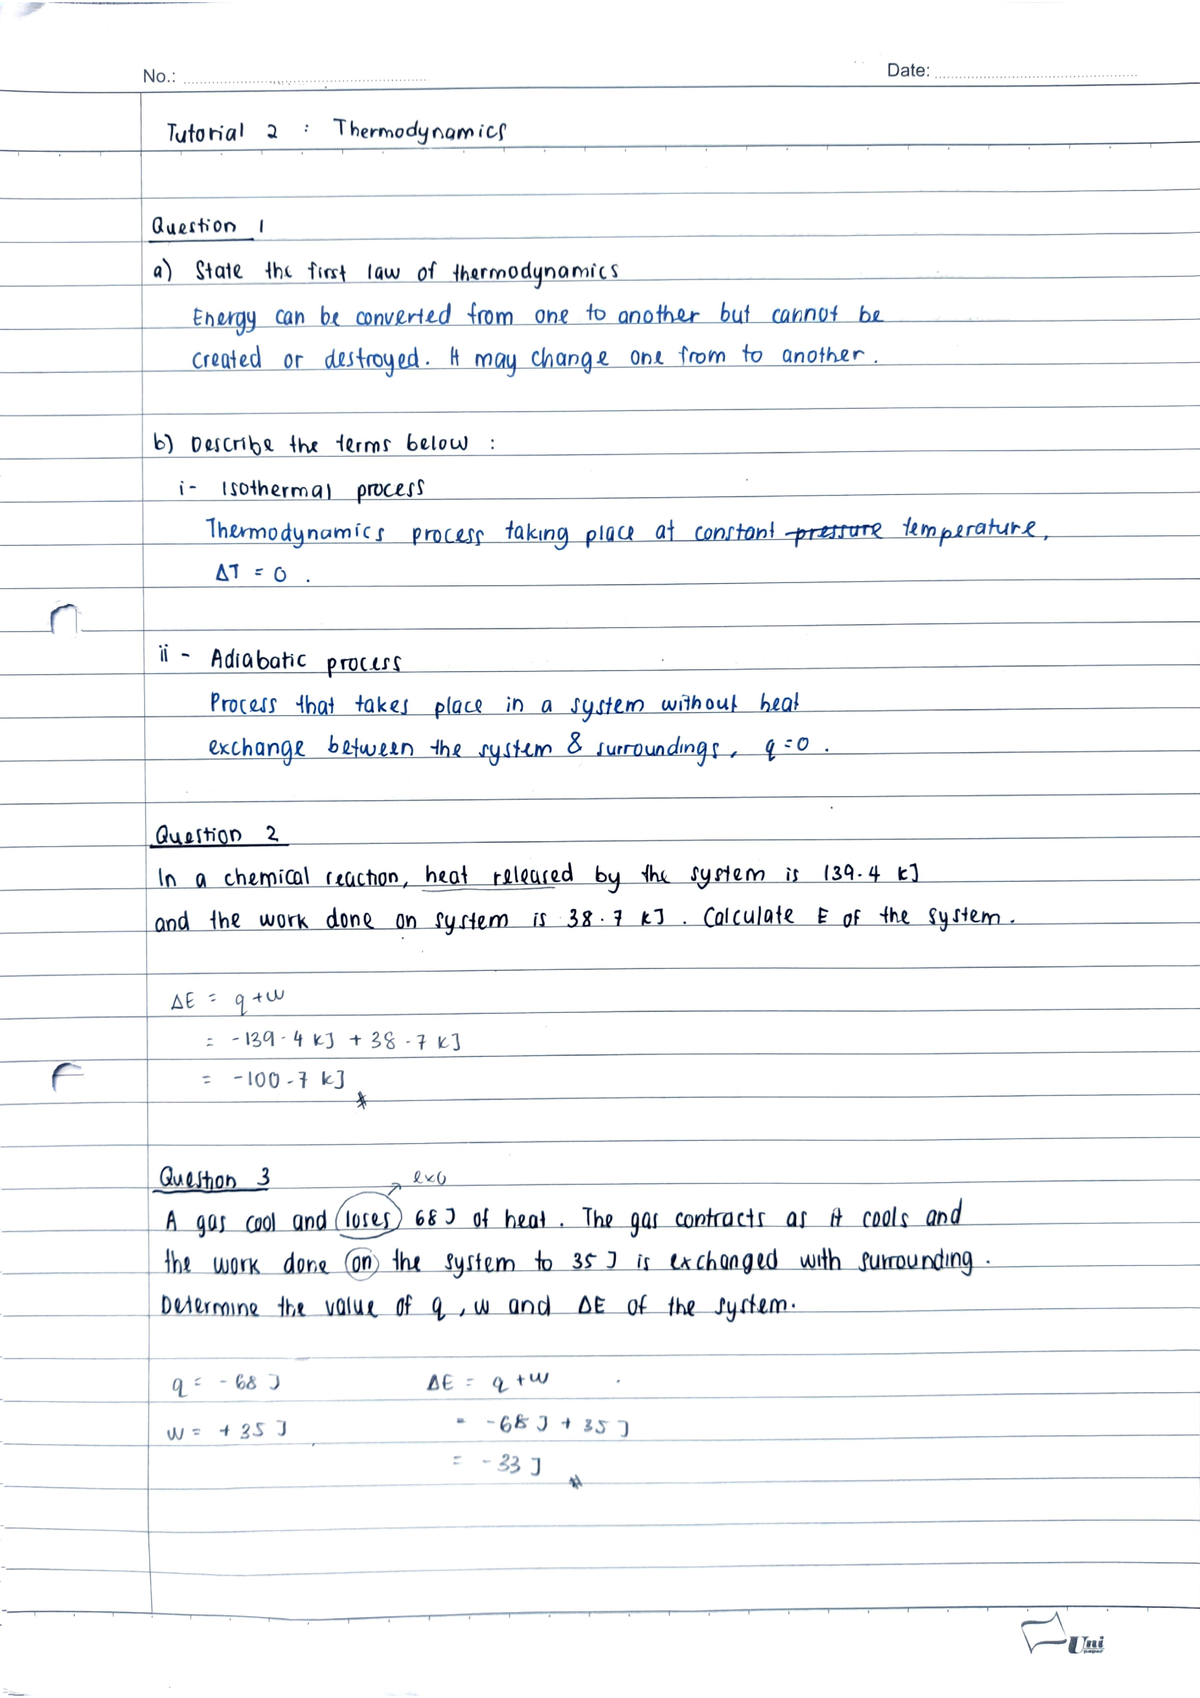 No.:
Date:
Tutorial 2 : Thermodynamics
Question 1
a) State the first law of thermodynamics
Energy can be converted from one to another but cannot be
created or destroyed. It may change one from to another.
b) Describe the terms below :
i- Isothermal process
Thermodynamics process taking place at constant pressure temperature,
ΔT = 0 .
ii - Adiabatic process
Process that takes place in a system without heat
exchange between the system & surroundings, q=0 .
Question 2
In a chemical reaction, heat released by the system is 139.4 kJ
and the work done on system is 38.7 kJ . Calculate E of the system.
ΔE = q+w
= -139.4 kJ + 38.7 kJ
= -100.7 kJ
Question 3
exo
A gas cool and loses 68 J of heat. The gas contracts as it cools and
the work done on the system to 35 J is exchanged with surrounding.
Determine the value of q, w and ΔE of the system.
q = -68 J ΔE = q+w
w = +35 J = -68 J + 35 J
= -33 J
Uni
paper